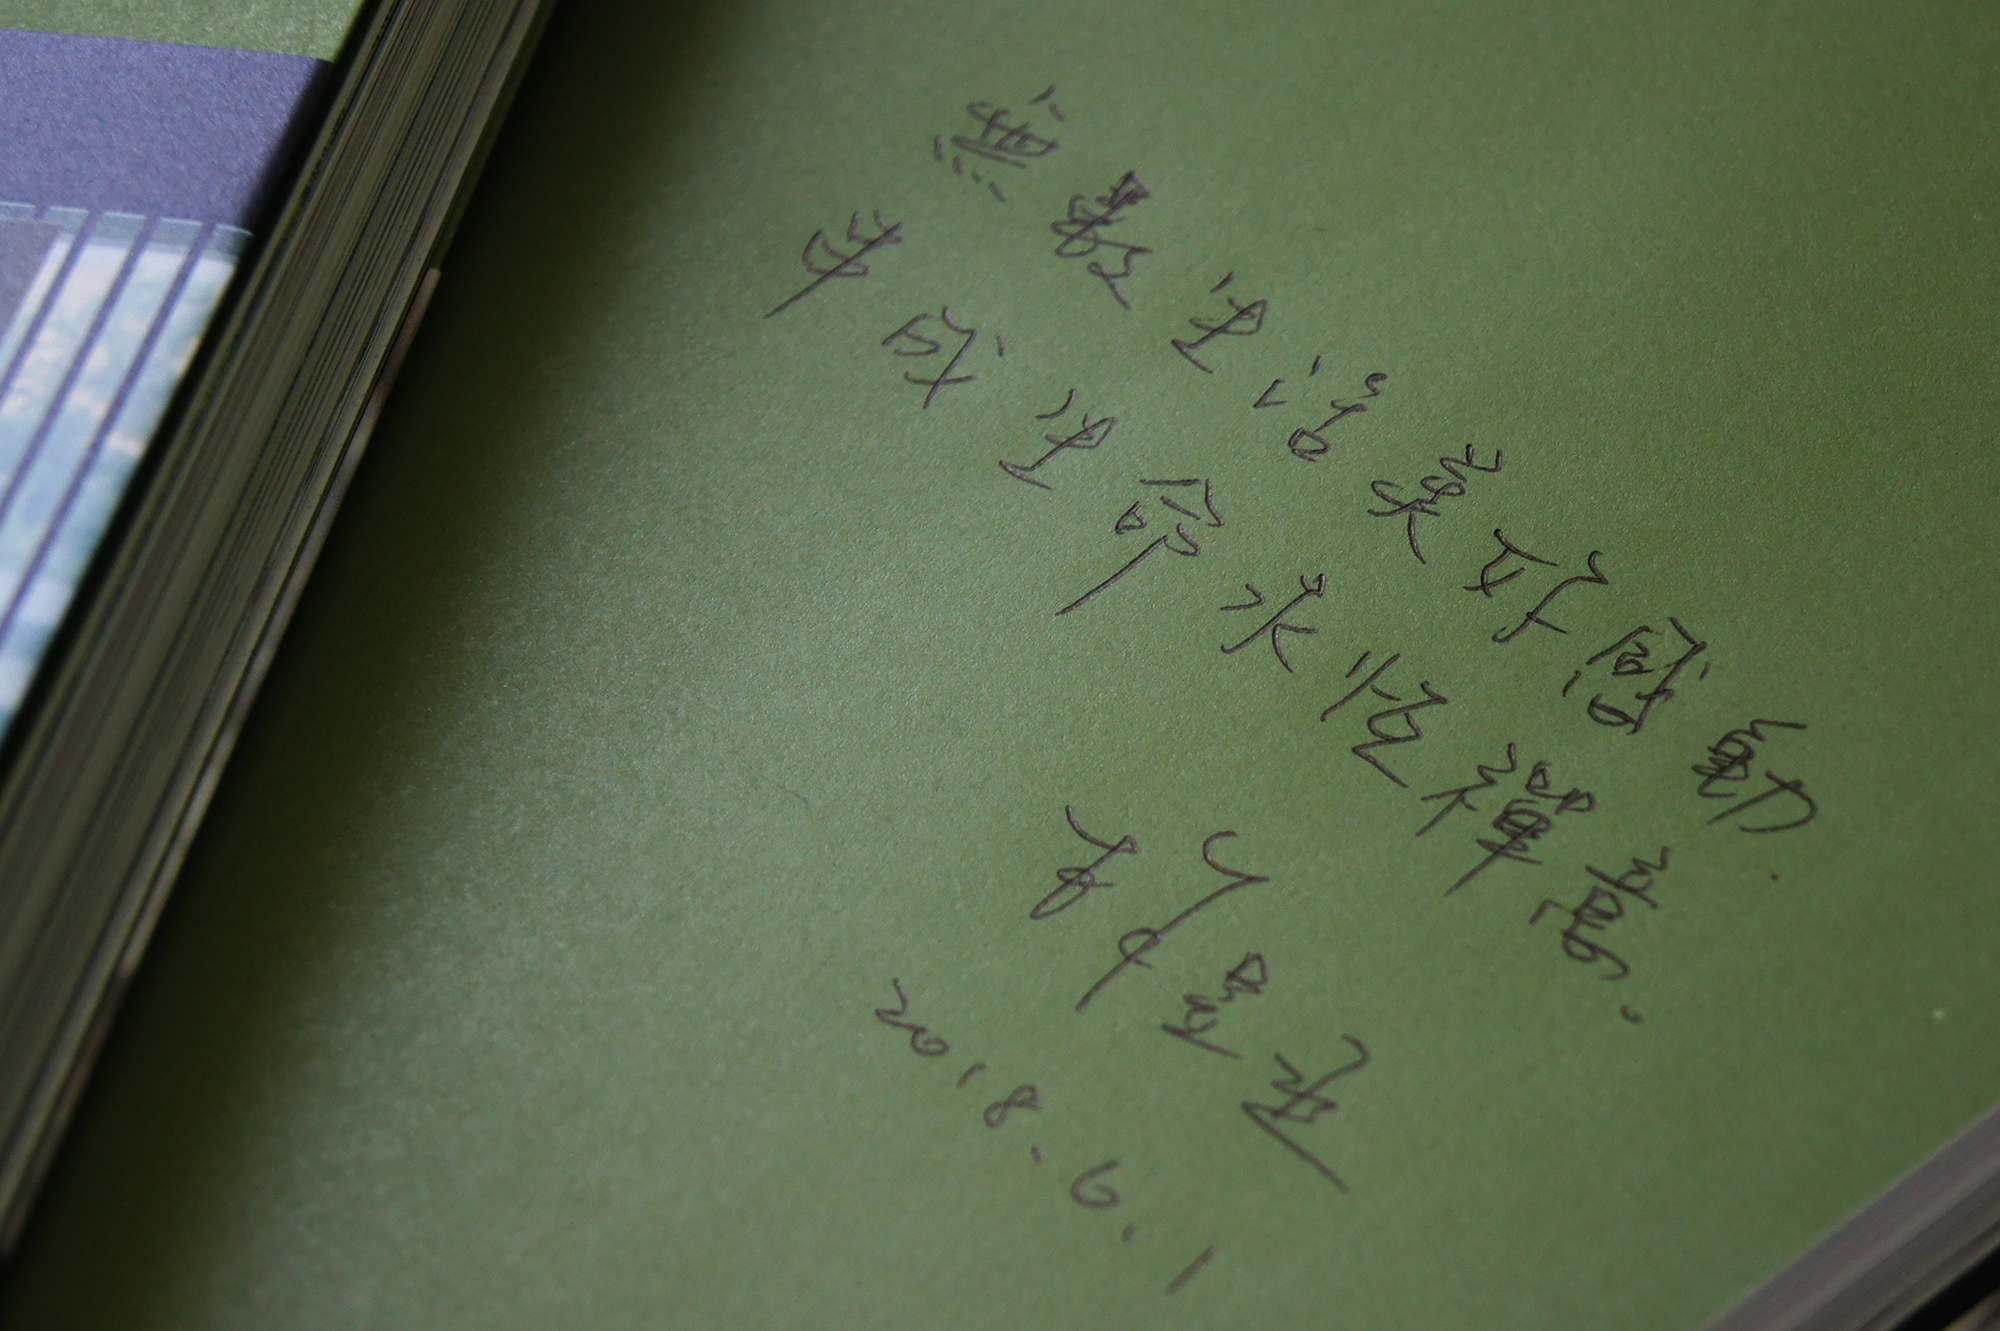 無數生活美好感動
形成生命永恆禪意.
2018.6.1